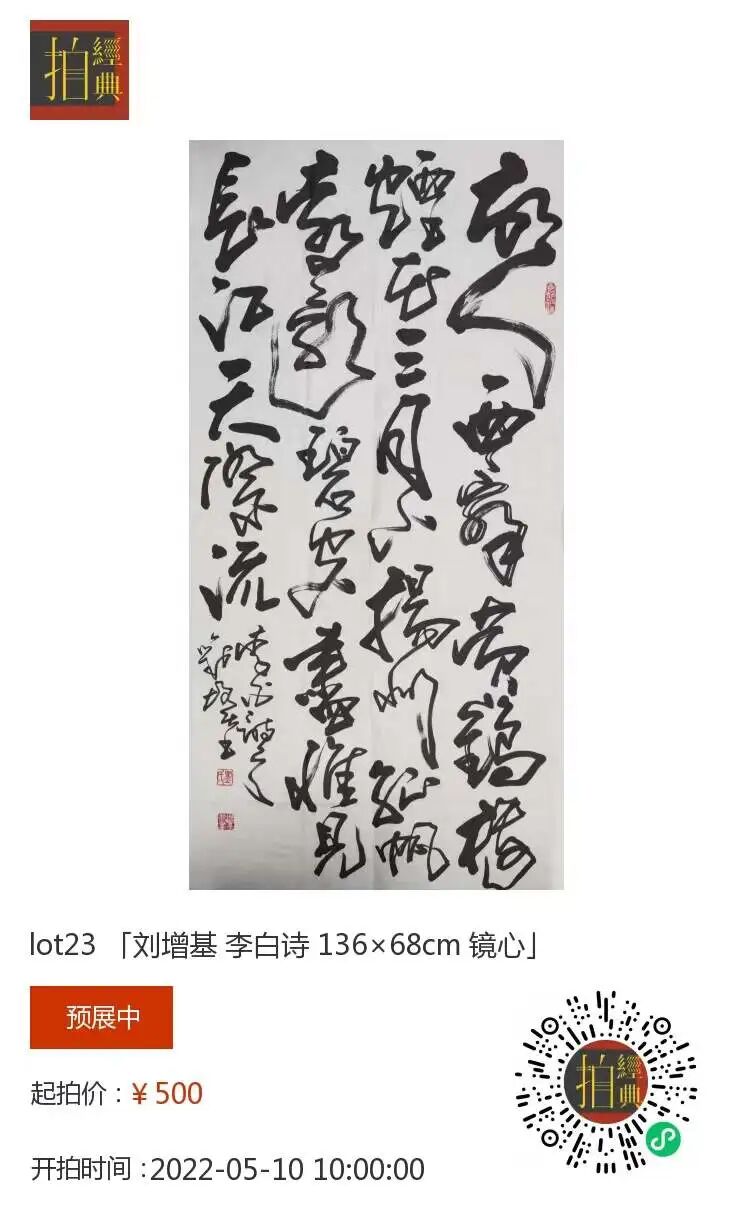 經典
拍
故人西辭黃鶴樓
煙花三月下揚州孤帆
遠影碧空盡惟見
長江天際流
李白詩
劉增基書
lot23 「刘增基 李白诗 136×68cm 镜心」
预展中
起拍价：¥ 500
开拍时间 :2022-05-10 10:00:00
經典
拍